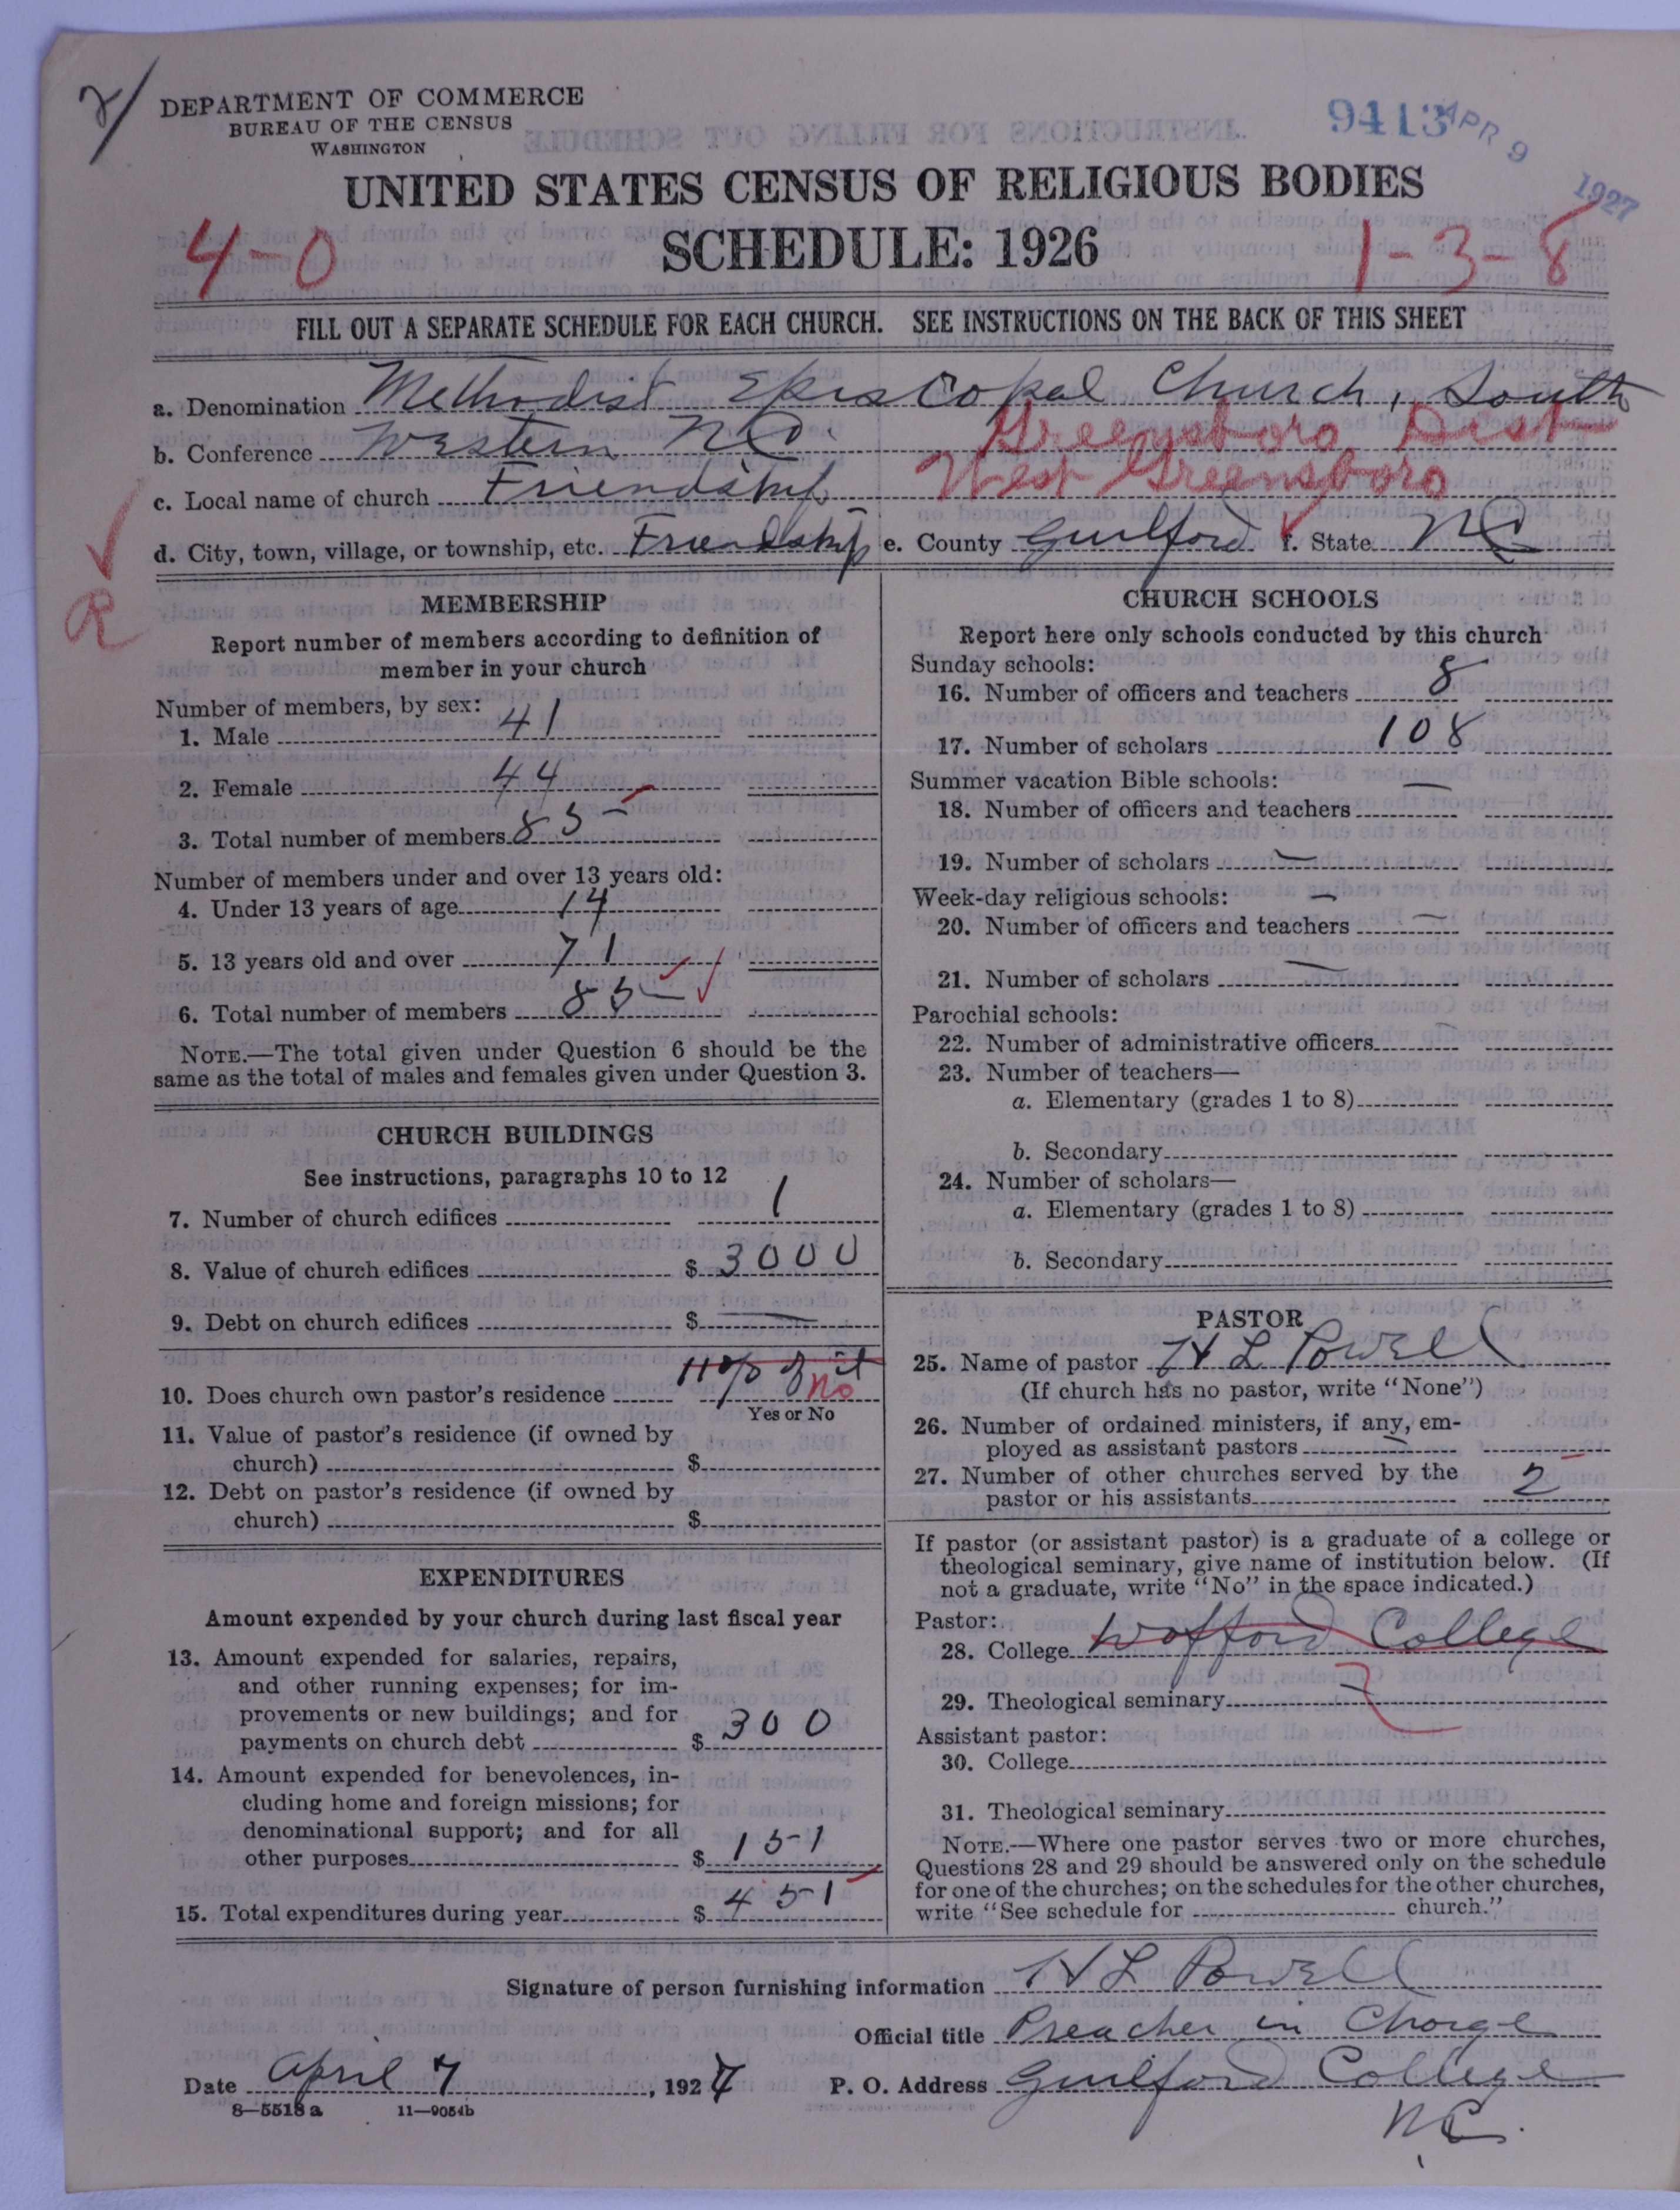 2/
DEPARTMENT OF COMMERCE
BUREAU OF THE CENSUS
WASHINGTON
9413 APR 9 1927
UNITED STATES CENSUS OF RELIGIOUS BODIES
4-0 SCHEDULE: 1926 1-3-8
FILL OUT A SEPARATE SCHEDULE FOR EACH CHURCH. SEE INSTRUCTIONS ON THE BACK OF THIS SHEET
a. Denomination Methodist Episcopal Church, South
b. Conference Western N.C. Greensboro Dist
c. Local name of church Friendship West Greensboro
d. City, town, village, or township, etc. Friendship e. County Guilford f. State NC
R
MEMBERSHIP
Report number of members according to definition of
member in your church
Number of members, by sex:
1. Male 41
2. Female 44
3. Total number of members 85
Number of members under and over 13 years old:
4. Under 13 years of age 14
5. 13 years old and over 71
6. Total number of members 85
NOTE.—The total given under Question 6 should be the
same as the total of males and females given under Question 3.
CHURCH BUILDINGS
See instructions, paragraphs 10 to 12
7. Number of church edifices 1
8. Value of church edifices $ 3000
9. Debt on church edifices $ —
10. Does church own pastor's residence 11% of it No
Yes or No
11. Value of pastor's residence (if owned by
church) $
12. Debt on pastor's residence (if owned by
church) $
EXPENDITURES
Amount expended by your church during last fiscal year
13. Amount expended for salaries, repairs,
and other running expenses; for im-
provements or new buildings; and for
payments on church debt $ 300
14. Amount expended for benevolences, in-
cluding home and foreign missions; for
denominational support; and for all
other purposes $ 151
15. Total expenditures during year $ 451
CHURCH SCHOOLS
Report here only schools conducted by this church
Sunday schools:
16. Number of officers and teachers 8
17. Number of scholars 108
Summer vacation Bible schools:
18. Number of officers and teachers —
19. Number of scholars —
Week-day religious schools: —
20. Number of officers and teachers —
21. Number of scholars —
Parochial schools:
22. Number of administrative officers
23. Number of teachers—
a. Elementary (grades 1 to 8)
b. Secondary
24. Number of scholars—
a. Elementary (grades 1 to 8)
b. Secondary
PASTOR
25. Name of pastor H L Powell
(If church has no pastor, write "None")
26. Number of ordained ministers, if any, em-
ployed as assistant pastors —
27. Number of other churches served by the
pastor or his assistants 2
If pastor (or assistant pastor) is a graduate of a college or
theological seminary, give name of institution below. (If
not a graduate, write "No" in the space indicated.)
Pastor:
28. College Wofford College
29. Theological seminary —
Assistant pastor:
30. College
31. Theological seminary
NOTE.—Where one pastor serves two or more churches,
Questions 28 and 29 should be answered only on the schedule
for one of the churches; on the schedules for the other churches,
write "See schedule for church."
Signature of person furnishing information H L Powell
Official title Preacher in Charge
Date April 7, 1927 P. O. Address Guilford College
N.C.
8—5518 a 11—9054b